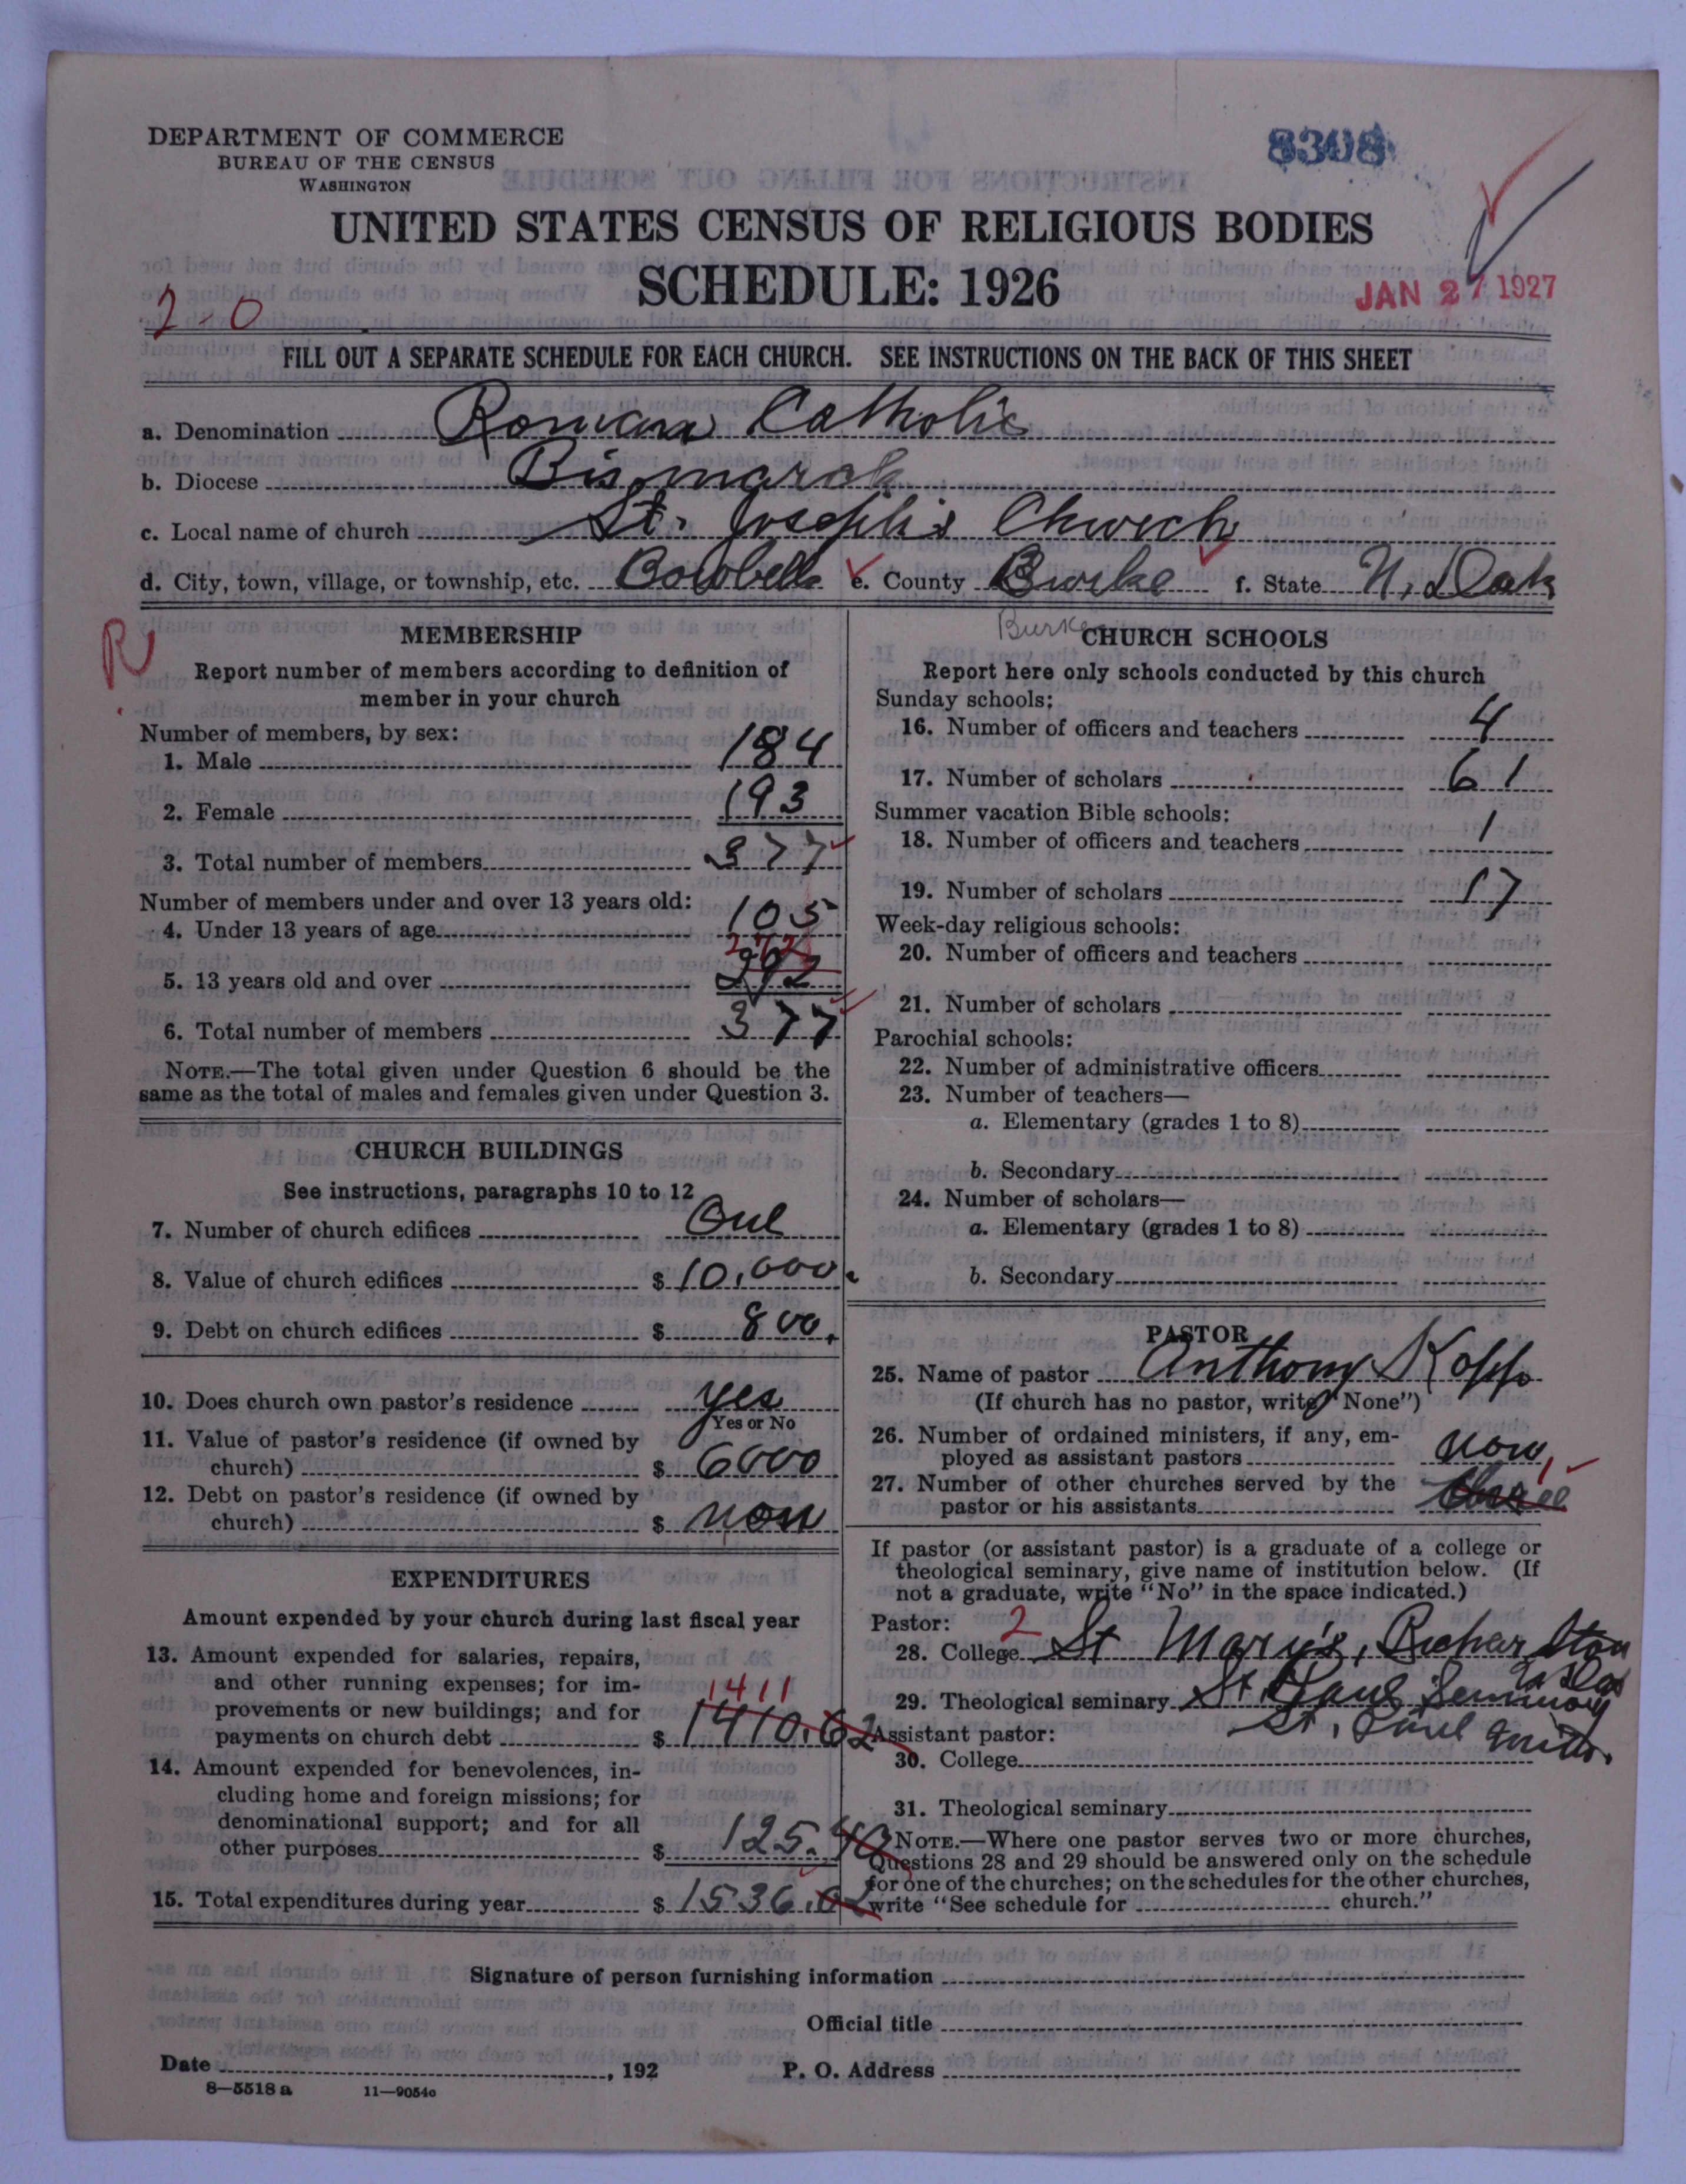 DEPARTMENT OF COMMERCE
BUREAU OF THE CENSUS
WASHINGTON
8308
UNITED STATES CENSUS OF RELIGIOUS BODIES
SCHEDULE: 1926
JAN 27 1927
2-0
FILL OUT A SEPARATE SCHEDULE FOR EACH CHURCH. SEE INSTRUCTIONS ON THE BACK OF THIS SHEET
a. Denomination Roman Catholic
b. Diocese Bismarck
c. Local name of church St. Joseph's Church
d. City, town, village, or township, etc. Bowbells e. County Burke f. State N. Dak
Burke
R
MEMBERSHIP
Report number of members according to definition of
member in your church
Number of members, by sex:
1. Male 184
2. Female 193
3. Total number of members 377
Number of members under and over 13 years old:
4. Under 13 years of age 105
272
5. 13 years old and over
6. Total number of members 377
NOTE.—The total given under Question 6 should be the
same as the total of males and females given under Question 3.
CHURCH BUILDINGS
See instructions, paragraphs 10 to 12
7. Number of church edifices One
8. Value of church edifices $ 10,000.
9. Debt on church edifices $ 800.
10. Does church own pastor's residence yes
Yes or No
11. Value of pastor's residence (if owned by
church) $ 6000
12. Debt on pastor's residence (if owned by
church) $ non
EXPENDITURES
Amount expended by your church during last fiscal year
13. Amount expended for salaries, repairs,
and other running expenses; for im-
provements or new buildings; and for
payments on church debt $ 1410.62
1411
14. Amount expended for benevolences, in-
cluding home and foreign missions; for
denominational support; and for all
other purposes $ 125.40
15. Total expenditures during year $ 1536.02
CHURCH SCHOOLS
Report here only schools conducted by this church
Sunday schools:
16. Number of officers and teachers 4
17. Number of scholars 61
Summer vacation Bible schools:
18. Number of officers and teachers 1
19. Number of scholars 17
Week-day religious schools:
20. Number of officers and teachers
21. Number of scholars
Parochial schools:
22. Number of administrative officers
23. Number of teachers—
a. Elementary (grades 1 to 8)
b. Secondary
24. Number of scholars—
a. Elementary (grades 1 to 8)
b. Secondary
PASTOR
25. Name of pastor Anthony Kopp
(If church has no pastor, write "None")
26. Number of ordained ministers, if any, em-
ployed as assistant pastors
27. Number of other churches served by the
pastor or his assistants
If pastor (or assistant pastor) is a graduate of a college or
theological seminary, give name of institution below. (If
not a graduate, write "No" in the space indicated.)
Pastor: 2
28. College St Mary's, Richardton
N Dak
29. Theological seminary St Paul Seminary
St. Paul Minn.
Assistant pastor:
30. College
31. Theological seminary
NOTE.—Where one pastor serves two or more churches,
Questions 28 and 29 should be answered only on the schedule
for one of the churches; on the schedules for the other churches,
write "See schedule for church."
Signature of person furnishing information
Official title
Date , 192 P. O. Address
8—5518 a 11—9054c